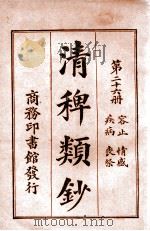 第二十六册
容止 情感
疾病 丧祭
清稗類鈔
商務印書館發行